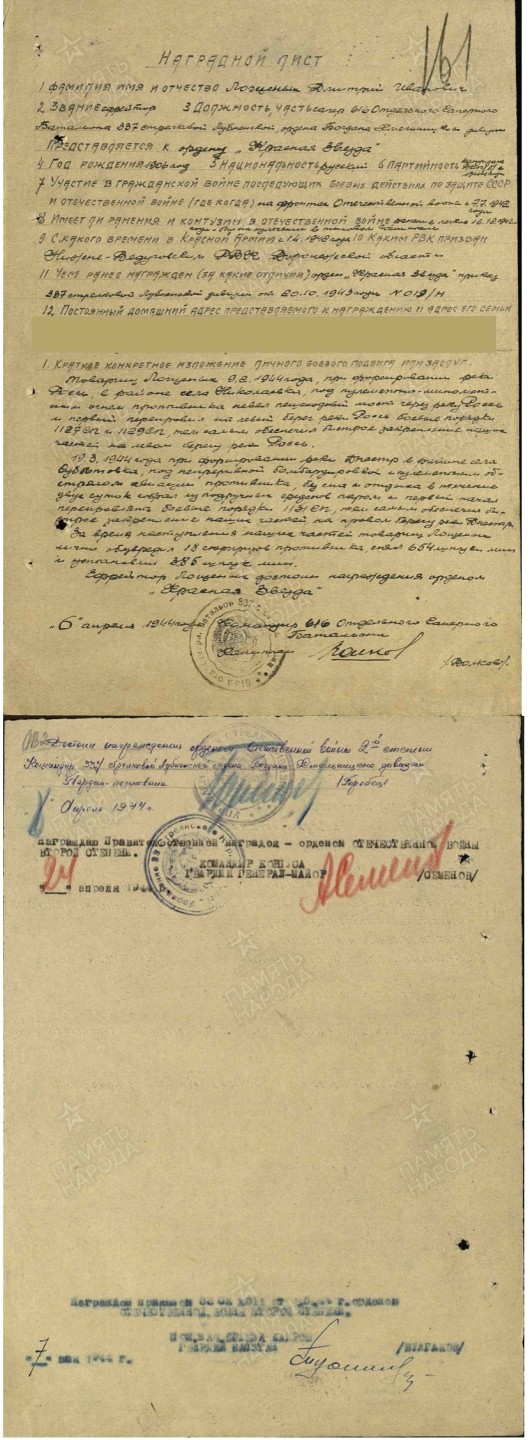 161
НАГРАДНОЙ ЛИСТ
1 ФАМИЛИЯ ИМЯ И ОТЧЕСТВО Лощеных Дмитрий Иванович
2 ЗВАНИЕ ефрейтор 3 ДОЛЖНОСТЬ, ЧАСТЬ сапер 616 Отдельного Саперного
Батальона 337 стрелковой Лубенской ордена Богдана Хмельницкого дивизии
ПРЕДСТАВЛЯЕТСЯ К ордену „Красная Звезда"
4 ГОД РОЖДЕНИЯ 1906 год 5 НАЦИОНАЛЬНОСТЬ русский 6 ПАРТИЙНОСТЬ
7 УЧАСТИЕ В ГРАЖДАНСКОЙ ВОЙНЕ ПОСЛЕДУЮЩИХ БОЕВЫХ ДЕЙСТВИЯХ ПО ЗАЩИТЕ СССР
И ОТЕЧЕСТВЕННОЙ ВОЙНЕ (ГДЕ КОГДА) на фронтах Отечественной войны с 7.7.1942
года
8 ИМЕЕТ ЛИ РАНЕНИЯ И КОНТУЗИИ В ОТЕЧЕСТВЕННОЙ ВОЙНЕ ранение легкое 16.12.1942
9 С КАКОГО ВРЕМЕНИ В КРАСНОЙ АРМИИ с 1942 года 10 КАКИМ РВК ПРИЗВАН
Нижне-Ведугским РВК Воронежской области
11 ЧЕМ РАНЕЕ НАГРАЖДЕН (ЗА КАКИЕ ОТЛИЧИЯ) орден „Красная Звезда" приказ
337 стрелковой Лубенской дивизии от 20.10.1943 года N 019/н
12. ПОСТОЯННЫЙ ДОМАШНИЙ АДРЕС ПРЕДСТАВЛЯЕМОГО К НАГРАЖДЕНИЮ И АДРЕС ЕГО СЕМЬИ
1. КРАТКОЕ КОНКРЕТНОЕ ИЗЛОЖЕНИЕ ЛИЧНОГО БОЕВОГО ПОДВИГА ИЛИ ЗАСЛУГ.
Товарищ Лощеных 9.2.1944 года, при форсировании реки
Рось в районе села Николаевка, под пулеметно-минометным
огнем противника навел пешеходный мост через реку Рось
и первый переправил на левый берег реки Рось боевые порядки
1127СП и 1129СП, тем самым обеспечил быстрое закрепление наших
частей на левом берегу реки Рось.
19.3.1944 года при форсировании реки Днестр в районе села
под непрерывной бомбардировкой и пулеметным обстрелом
авиации противника, без сна и отдыха в течение
двух суток собрал из подручных средств паром и первый начал
переправлять боевые порядки 1131СП, тем самым обеспечил быстрое
закрепление наших частей на правом берегу реки Днестр.
За время наступления наших частей товарищ Лощеных
лично обезвредил 18 сюрпризов противника, снял 654 штуки мин
и установил 385 штук мин.
Ефрейтор Лощеных достоин награждения орденом
„Красная Звезда"
„6" апреля 1944 года Командир 616 Отдельного Саперного
Батальона
Капитан /Волков/
Достоин награждения орденом Отечественной войны 2й степени
Командир 337 стрелковой Лубенской ордена Богдана Хмельницкого дивизии
Гвардии полковник /Горобец/
8 Апреля 1944 г.
Награждаю Правительственной наградой - орденом ОТЕЧЕСТВЕННОЙ ВОЙНЫ
ВТОРОЙ СТЕПЕНИ.
КОМАНДИР КОРПУСА
ГВАРДИИ ГЕНЕРАЛ-МАЙОР /СЕМЕНОВ/
"24" апреля 194
ПАМЯТЬ НАРОДА
Награжден приказом г. орденом
ОТЕЧЕСТВЕННОЙ ВОЙНЫ ВТОРОЙ СТЕПЕНИ.
ГВАРДИИ КАПИТАН /БУЛГАКОВ/
"7" мая 1944 г.